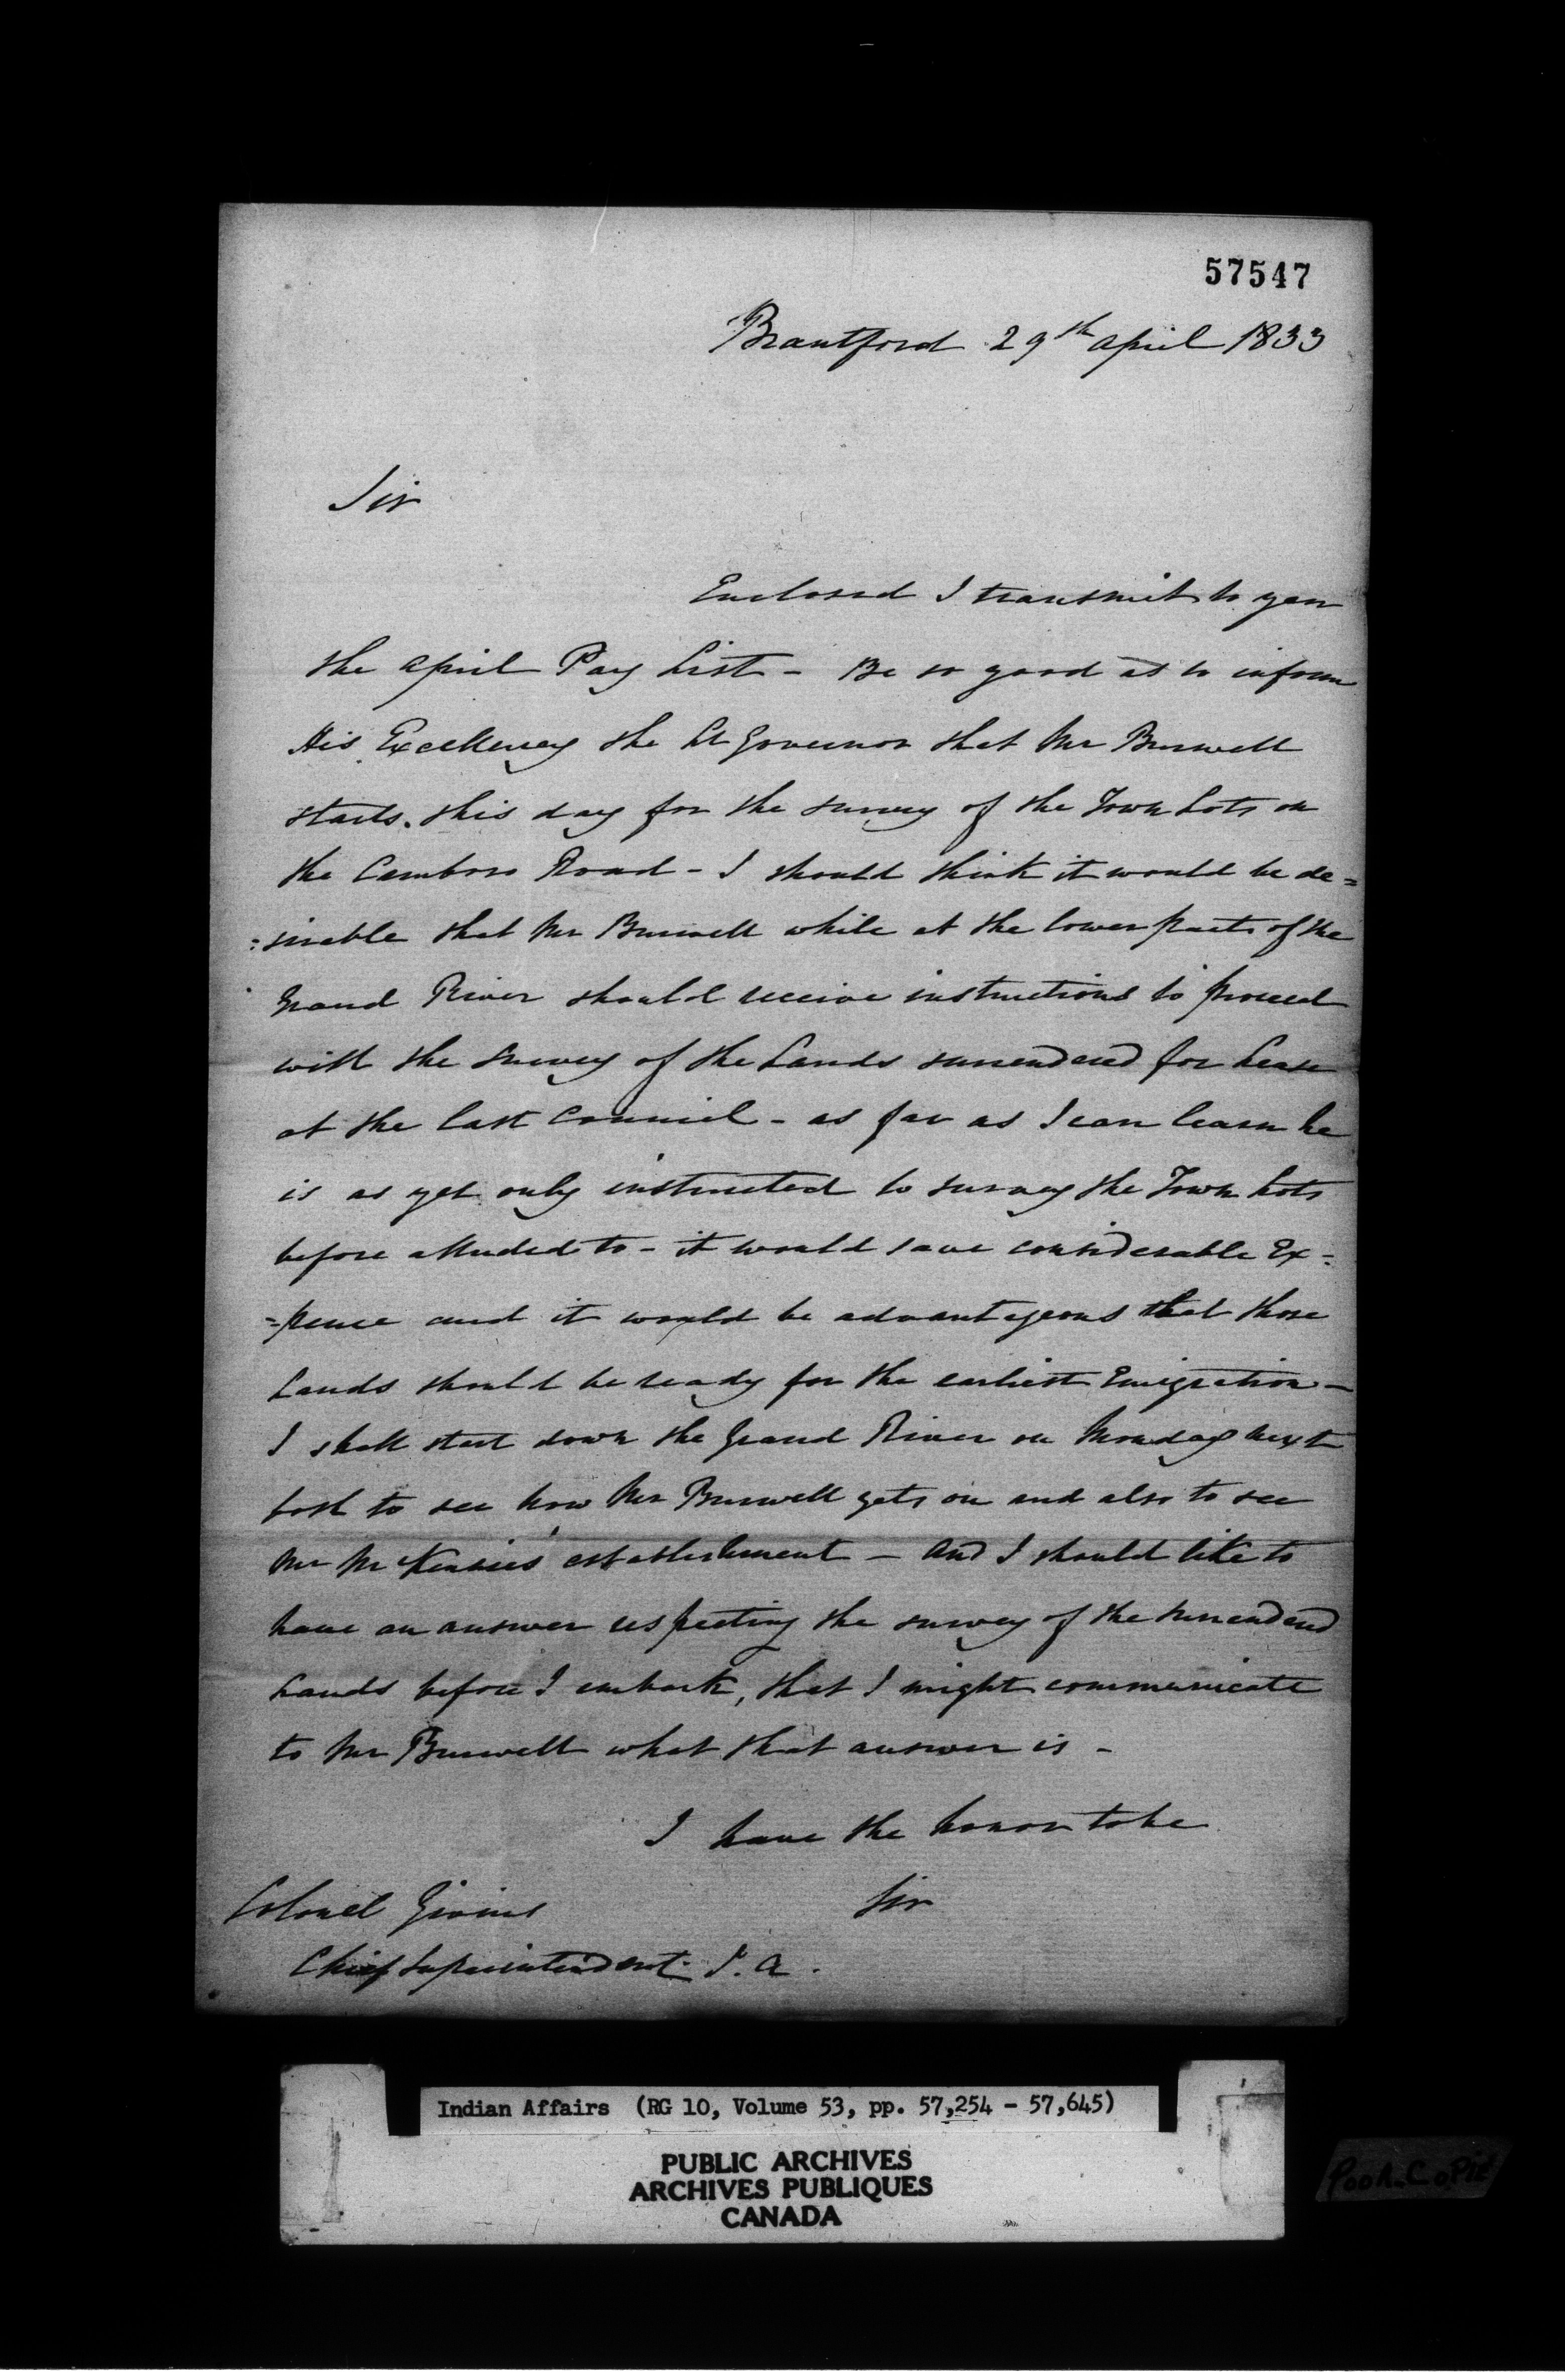 57547
Brantford 29th April 1833
Sir
Enclosed I transmit to you
the April Pay List - Be so good as to inform
His Excellency the Lt Governor that Mr Burwell
starts this day for the survey of the Town Lots on
the Camboro Road - I should think it would be de=
=sirable that Mr Burwell while at the lower parts of the
Grand River should receive instructions to proceed
with the Survey of the Lands surrendered for Lease
at the last Council - as far as I can learn he
is as yet only instructed to survey the Town Lots
before alluded to - it would save considerable Ex=
=pence and it would be advantageous that those
Lands should be ready for the earliest Emigration -
I shall start down the Grand River on Monday next
both to see how Mr Burwell gets on and also to see
Mr McKensies' establishment - And I should like to
have an answer respecting the survey of the surrendered
Lands before I embark, that I might communicate
to Mr Burwell what that answer is -
I have the honor to be
Sir
Colonel Givins
Chief Superintendent I. A.
Indian Affairs (RG 10, Volume 53, pp. 57,254 - 57,645)
PUBLIC ARCHIVES
ARCHIVES PUBLIQUES
CANADA